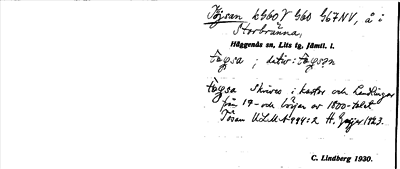 Töjsan k G60 V G60 G67 NV, å i
Storbränna,
Häggenås sn, Lits tg, Jämtl. l.
; detur:
skrives i kartor och handlingar
från 19- och början av 1800-talet
Tösan ULMA 994:2 H. Geijer 1923.
C. Lindberg 1930.